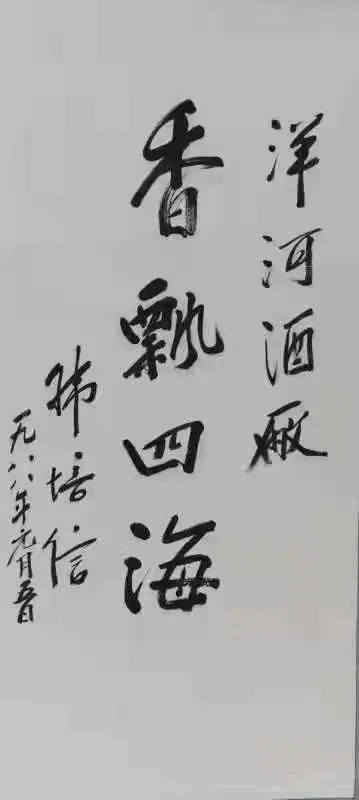 洋河酒厰
香飘四海
韩培信
一九八八年元月五日